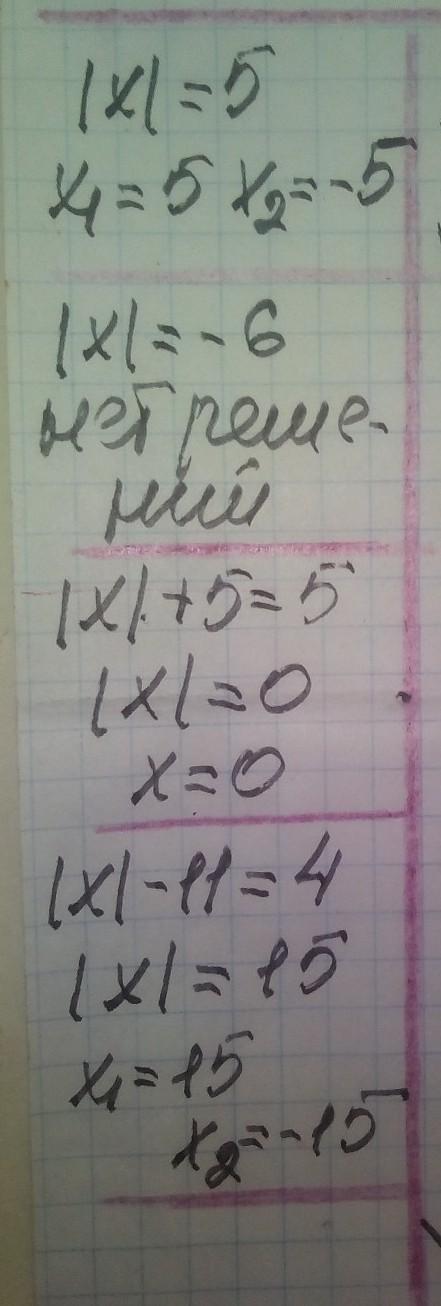 |x| = 5
x₁ = 5 x₂ = -5
|x| = - 6
нет реше-
ний
|x| + 5 = 5
|x| = 0
x = 0
|x| - 11 = 4
|x| = 15
x₁ = 15
x₂ = -15